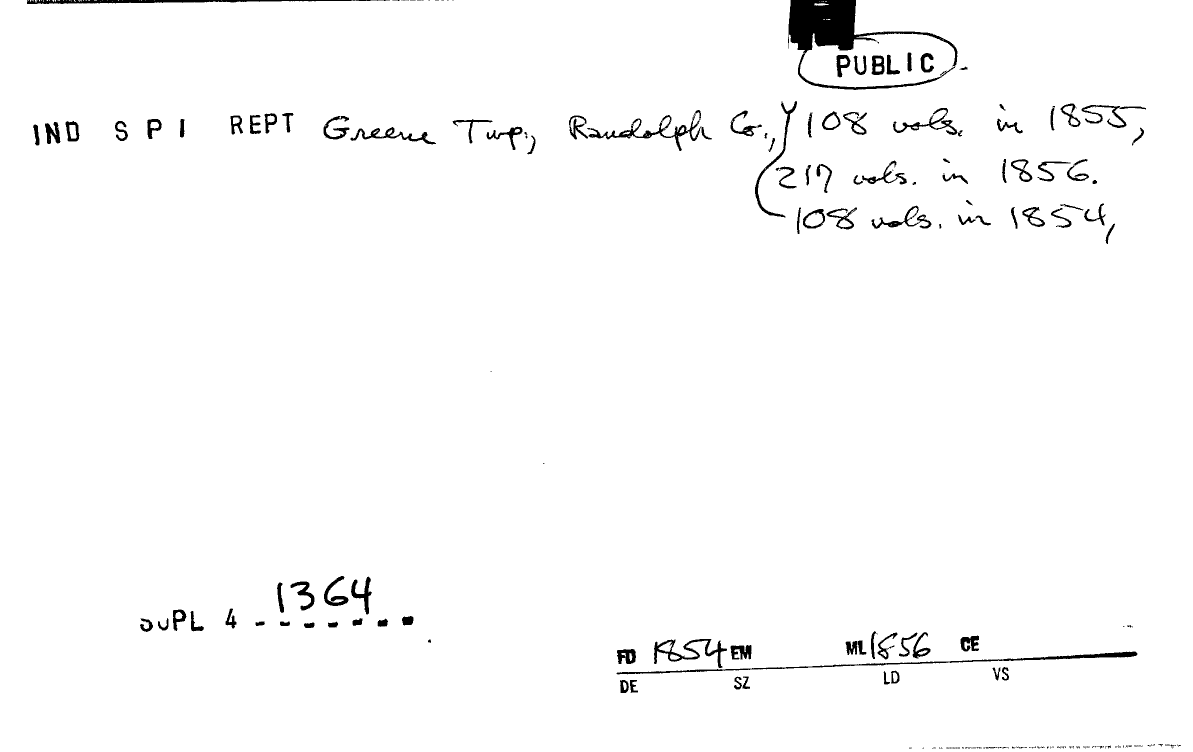 PUBLIC
IND S P I REPT Greene Twp., Randolph Co., 108 vols. in 1855,
217 vols. in 1856.
108 vols. in 1854,
SUPL 4 1364
FD 1854 EM ML 1856 CE
DE SZ LD VS